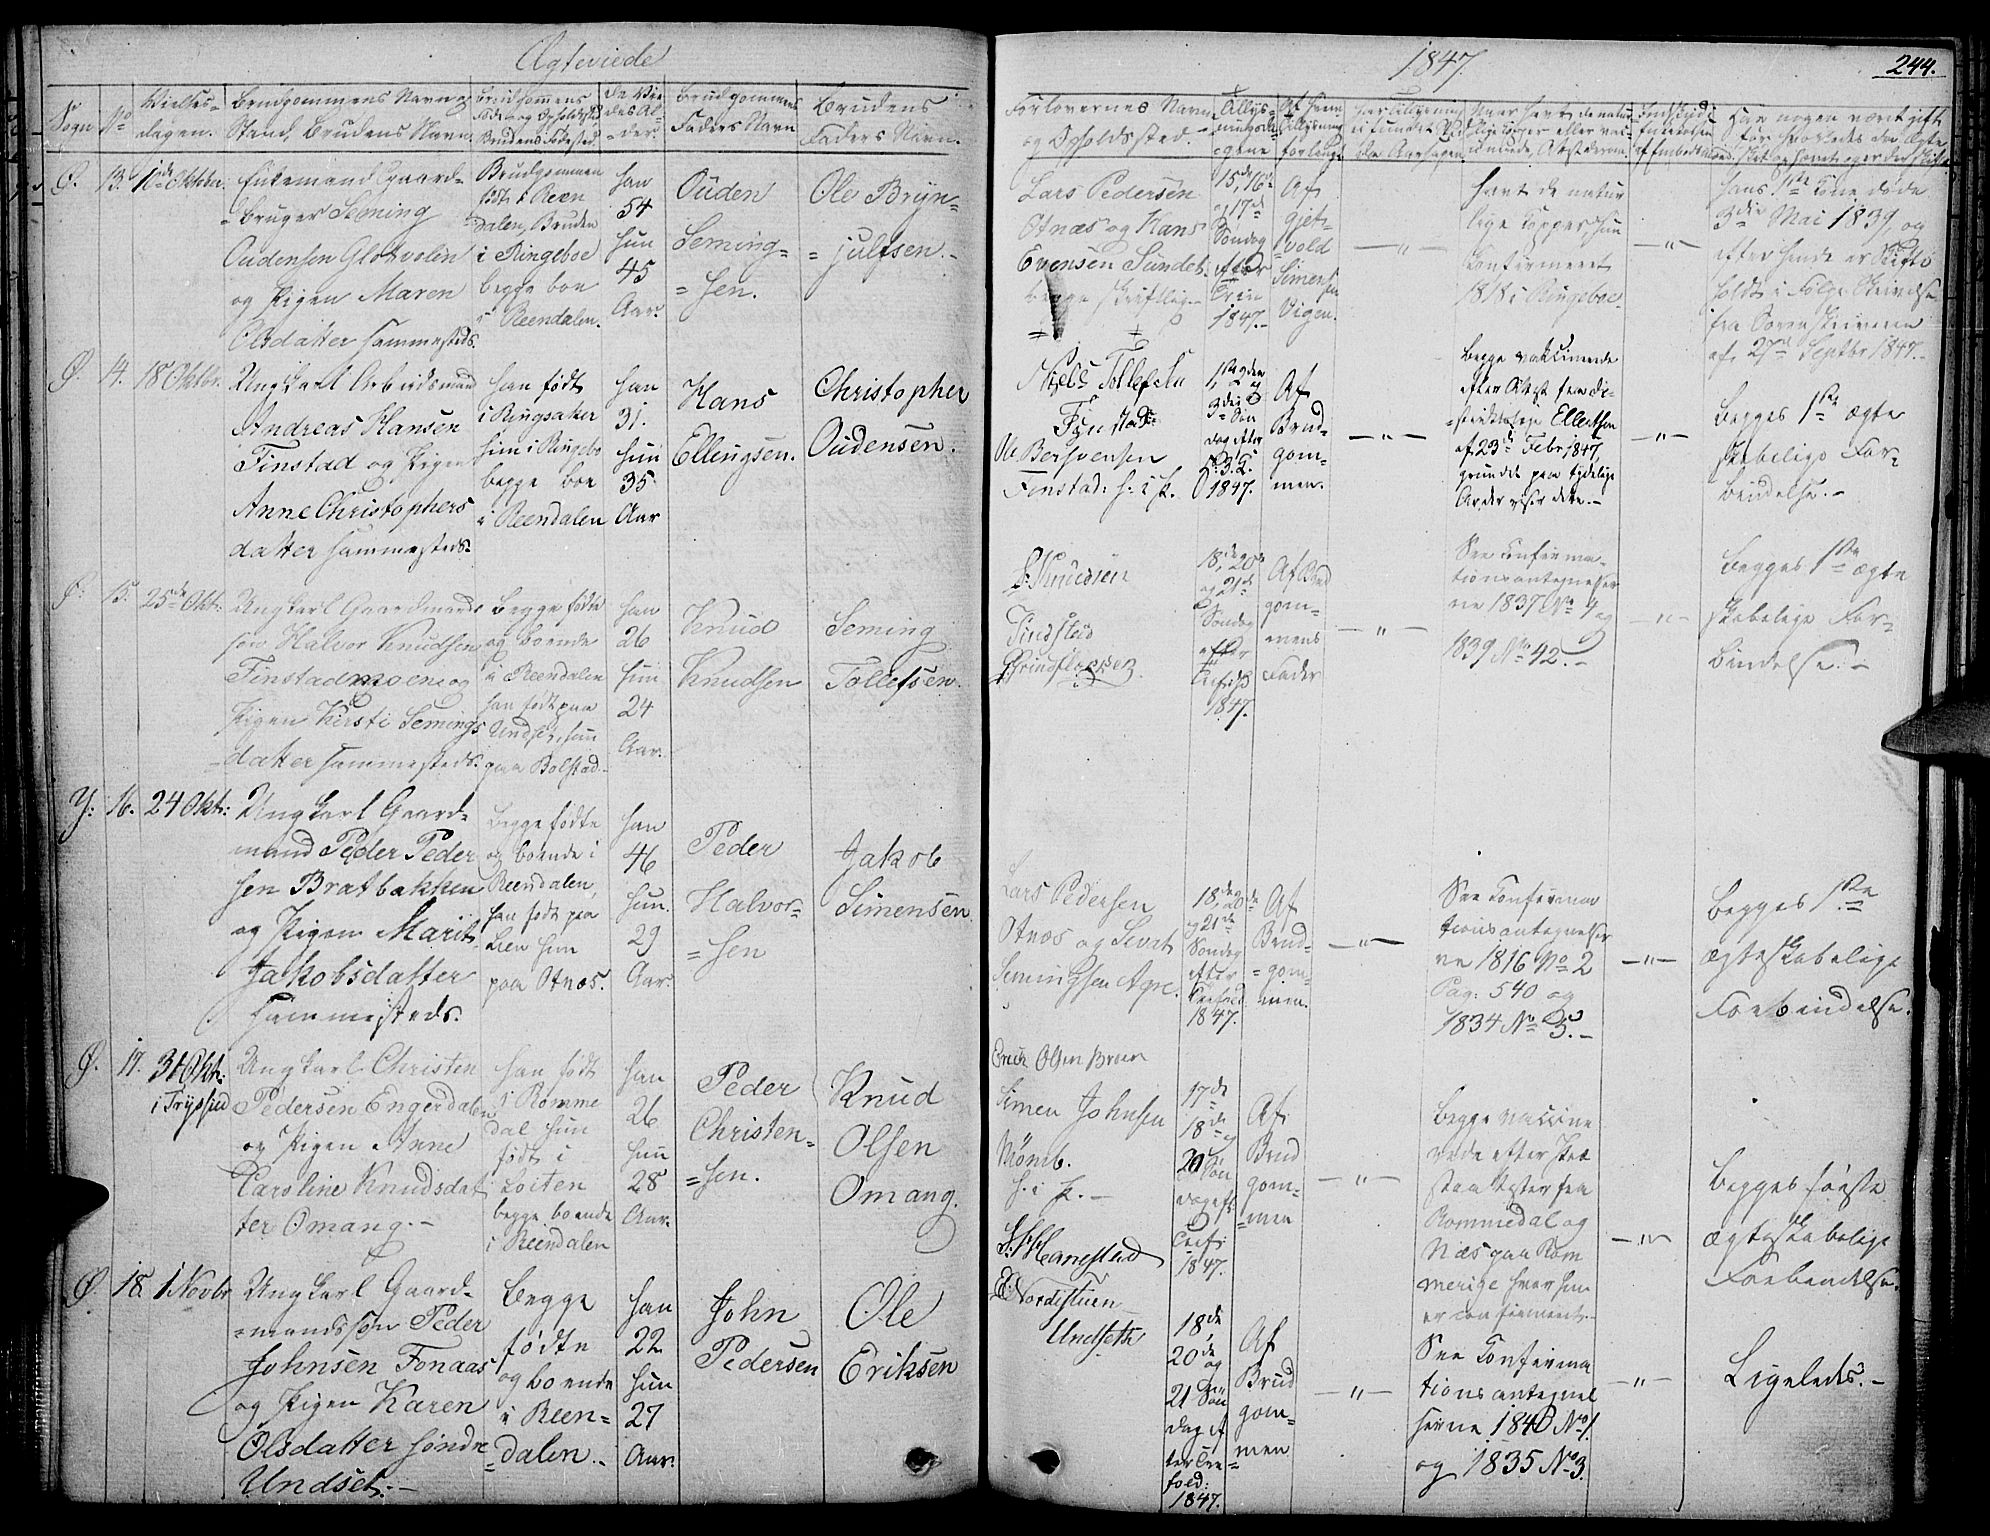 Ægteviede
1847.
244.
Sogn
No
Vielses-
dagen.
Brudgommens Navn og
Stand, Brudens Navn.
Brudgommens
Føde og Opholdssted
Brudens Fødested
de Vie
des Al-
der.
Brudgommens
Faders Navn
Brudens
Faders Navn.
Forlovernes Navn
og Opholdssted.
Ø. 13. 10de Oktbr.
Enkemand Gaard-
bruger Seming
Oudensen Glotvolen
og Pigen Maren
Olsdatter sammesteds.
Brudgommen
født i Reen
dalen, Bruden
i Ringeboe
begge boe
i Reendalen.
han
54
hun
45
Aar.
Ouden
Seming=
=sen.
Ole Bryn=
=julfsen.-
Lars Pedersen
Otnæs og Hans
Evensen Sundet.
begge skriftlig.-
15de, 16de
og 17de
Søndag
efter
Trin
1847.-
Af
Gjet-
vold
Simensen
Vigen.
-"-
havt de natur
lige Kopper, hun
Confirmeret
1818 i Ringeboe.
-"-
hans 1ste Kone døde
3die Mai 1839, og
efter hende er Skifte
holdt i Følge Skrivelse
fra Sorenskriveren
af 27de Septbr 1847.-
Ø. 14. 18 Oktbr.
Ungkarl Arbeidsmand
Andreas Hansen
Finstad og Pigen
Anne Christophers
datter sammesteds.
han født
i Ringsaker
hun i Ringebo
begge boe
i Reendalen
han
31.
hun
35
Aar
Hans
Ellingsen.
Christopher
Oudensen.
Niels Tollefsen
Finstad
Ole Bersvensen
Finstad. h. i P.
1ste, 2den og
3die Søn
dag efter
1847.
Af
Brud-
gom-
men.
-"-
Begge vaccinerede
efter Attest fra Di-
striktslæge Ellertsen
af 23de Febr 1847,
grundet paa tydelige
Ar, der viser dette.-
-"-
Begges 1ste ægte
skabelige For-
bindelse.-
Ø. 15. 25de Okt:
Ungkarl Gaardmands
søn Halvor Knudsen
Finstadmoen og
Pigen Kirsti Semings
datter sammesteds.
Begge fødte
og boende
i Reendalen
han født paa
Undset, hun
paa Bolstad
han
26
hun
24
Aar.
Knud
Knudsen
Seming
Tollefsen.
Knudsen
Findstad
18de, 20de
og 21de
Søndag
efter
Trefold
1847.
Af Brud
gom-
mens
Fader
-"-
See Confirma-
tionsantegnelser
ne 1837 No 4 og
1839 No 42.-
-"-
Begges 1ste ægte
skabelige For-
bindelse.-
Y: 16. 24 Okt:
Ungkarl Gaard-
mand Peder Peder
sen Bratbakken
og Pigen Marit
Jakobsdatter
sammesteds.
Begge fødte
og boende i
Reendalen,
han født paa
Lien hun
paa Otnæs.
han
46
hun.
29
Aar.
Peder
Halvor=
=sen
Jakob
Simensen
Lars Pedersen
Otnæs og Sivert
Semingsen Agre.
18de, 20de
og 21de
Søndag
efter
Trefold
1847.
Af
Brud-
=gom-
men.
-"-
See Confirma
tionsantegnelser
ne 1816 No 2
Pag: 540 og
1834 No 5.-
-"-
Begges 1ste
ægteskabelige
Forbindelse.
Ø. 17. 31 Okt:
i Trysild
Ungkarl Christen
Pedersen Engerdalen
og Pigen Anne
Caroline Knudsdat
ter Omang.-
han født
i Romme
dal hun
født i
Løiten
begge boende
i Reendalen
han
26
hun
28
Aar.
Peder
Christen=
=sen.
Knud
Olsen
Omang.
Erich Olsen Broen
Simen Johnsen
Mömb.
h. i P.-
17de
18de og
20 Søn
dag eft
Tref:
1847.
Af
Brud
gom-
=men
-"-
Begge vaccine
rede efter
Attester fra
Rommedal og
Næs paa Rom
merige hvor hun
er confirmeret.-
-"-
Begges første
ægteskabelige
Forbindelse.
Ø. 18. 1 Novbr
Ungkarl Gaard-
=mandssøn Peder
Johnsen Fonaas
og Pigen Karen
Olsdatter søndre
Undset.-
Begge
fødte
og boende
i Reen=
=dalen.-
han
22
hun
27
Aar.
John
Pedersen
Ole
Eriksen
Hanestad
E: Nordistuen
Undseth
18de
20de og
21 Søn
dag ef
ter Tre=
fold:
1847.
Af
Brud
gom-
men
-"-
See Confirma
tionsantegnel
serne 1840 No 1.
og 1835 No 3.
-"-
Ligeleds.-